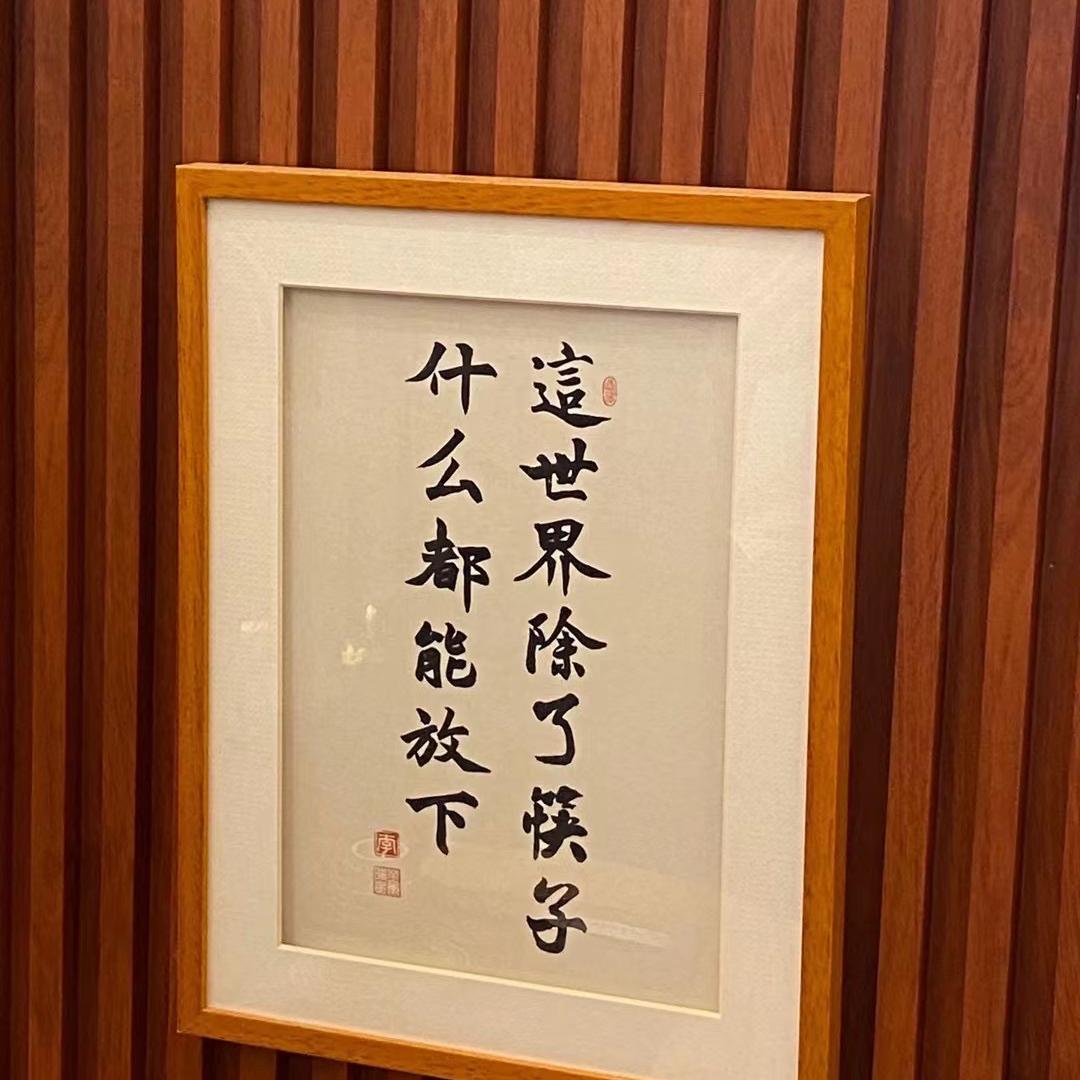 這世界除了筷子
什么都能放下
李